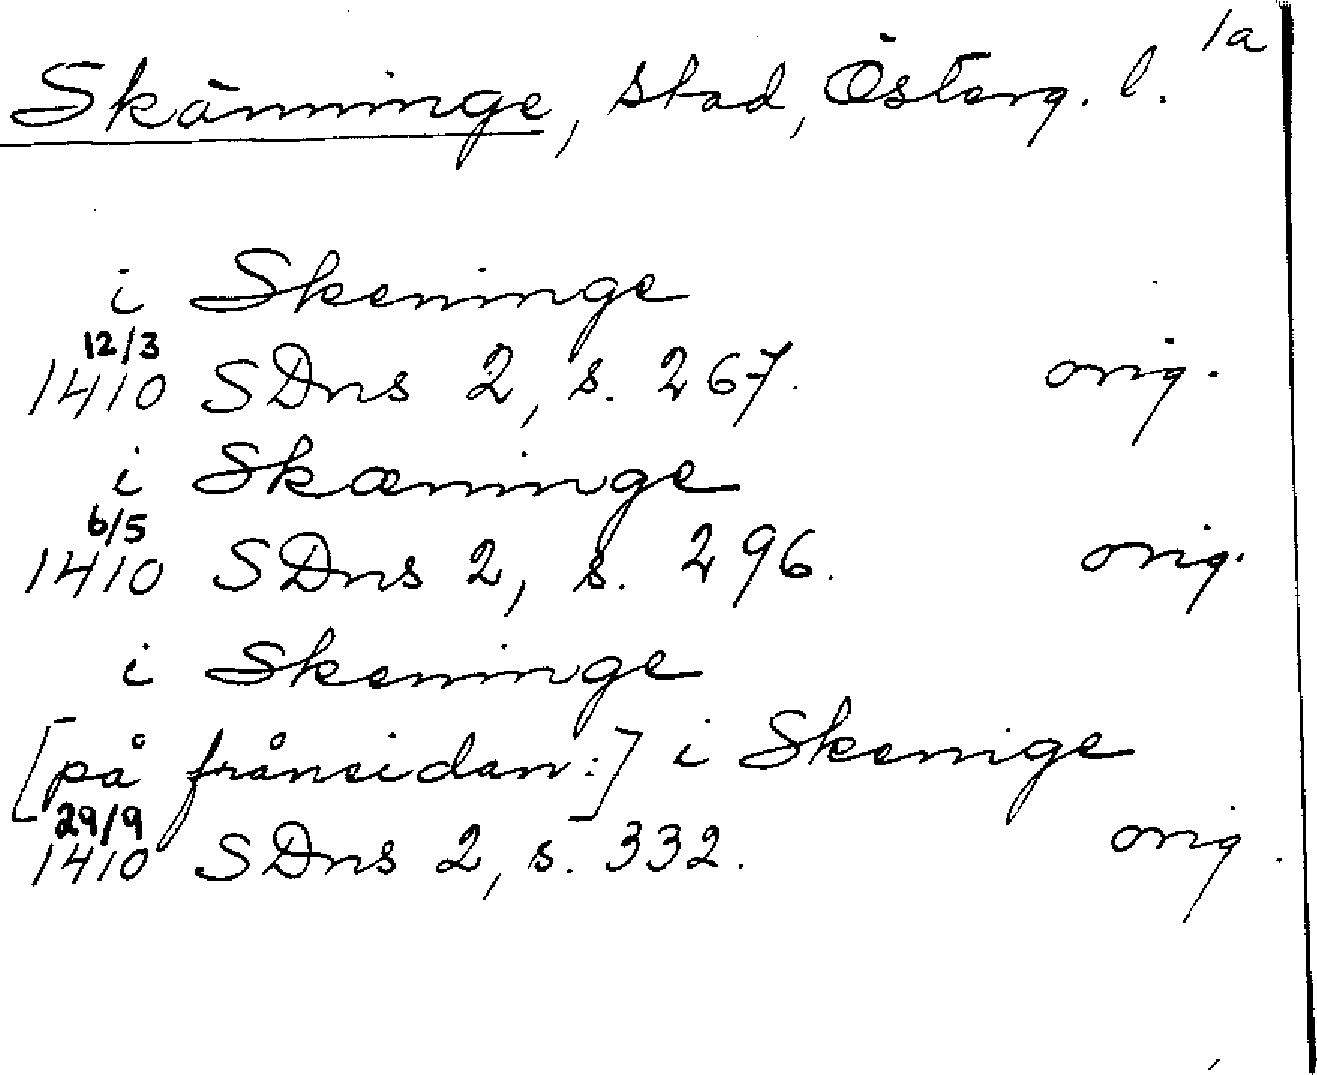 1a
Skänninge, stad, Österg. l.
i Skeninge
12/3
1410 SDns 2, s. 267. orig.
i Skæninge
6/5
1410 SDns 2, s. 296. orig.
i Skeninge
[på frånsidan:] i Skenige
29/9
1410 SDns 2, s. 332. orig.